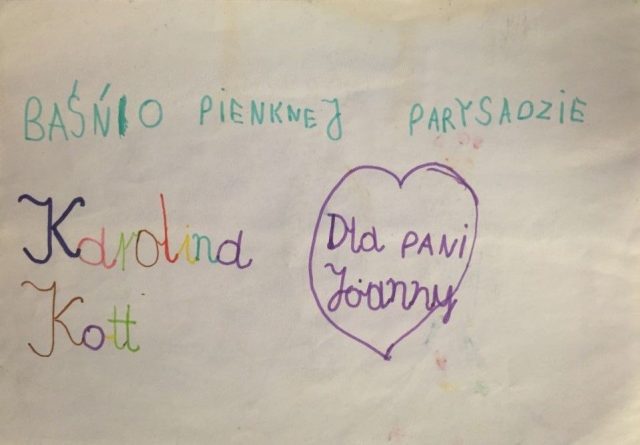 BAŚŃIO PIENKNEJ PARYSADZIE
Karolina
Kott
Dla PANi
Joanny